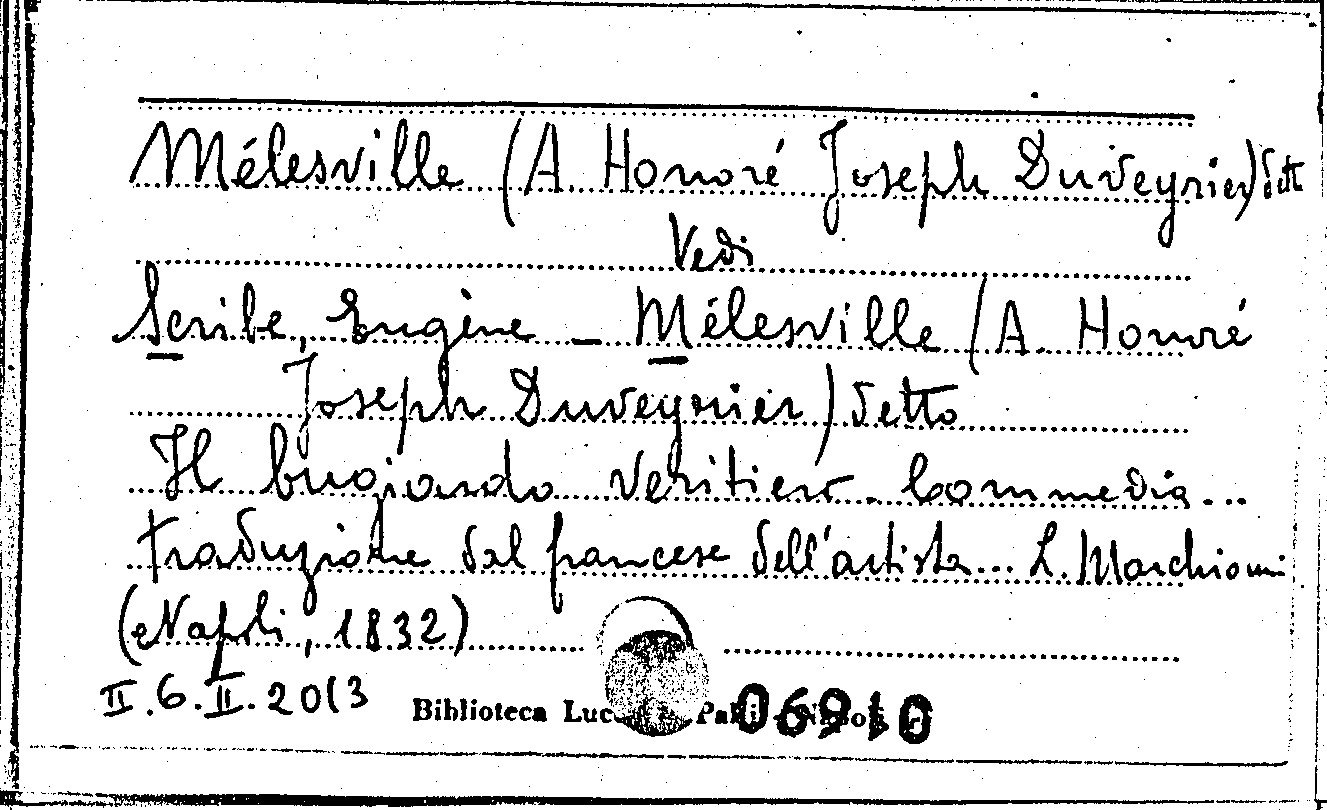 Mélesville (A Honoré Joseph Duveyrier) detto
Vedi
Scribe, Eugène – Mélesville (A. Honoré
Joseph Duveyrier) detto
Il bugiardo veritiero. Commedia...
traduzione dal francese dell'artista... L. Marchionni
(Napoli, 1832)
II.6.II.20(3 Biblioteca 06910